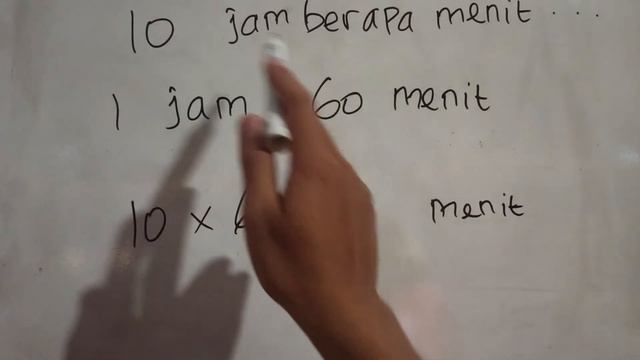 10 jam berapa menit ...
1 jam 60 menit
10 x menit